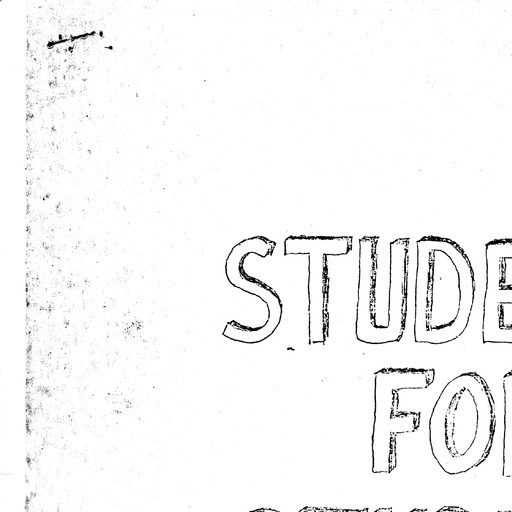 STUDE
FO